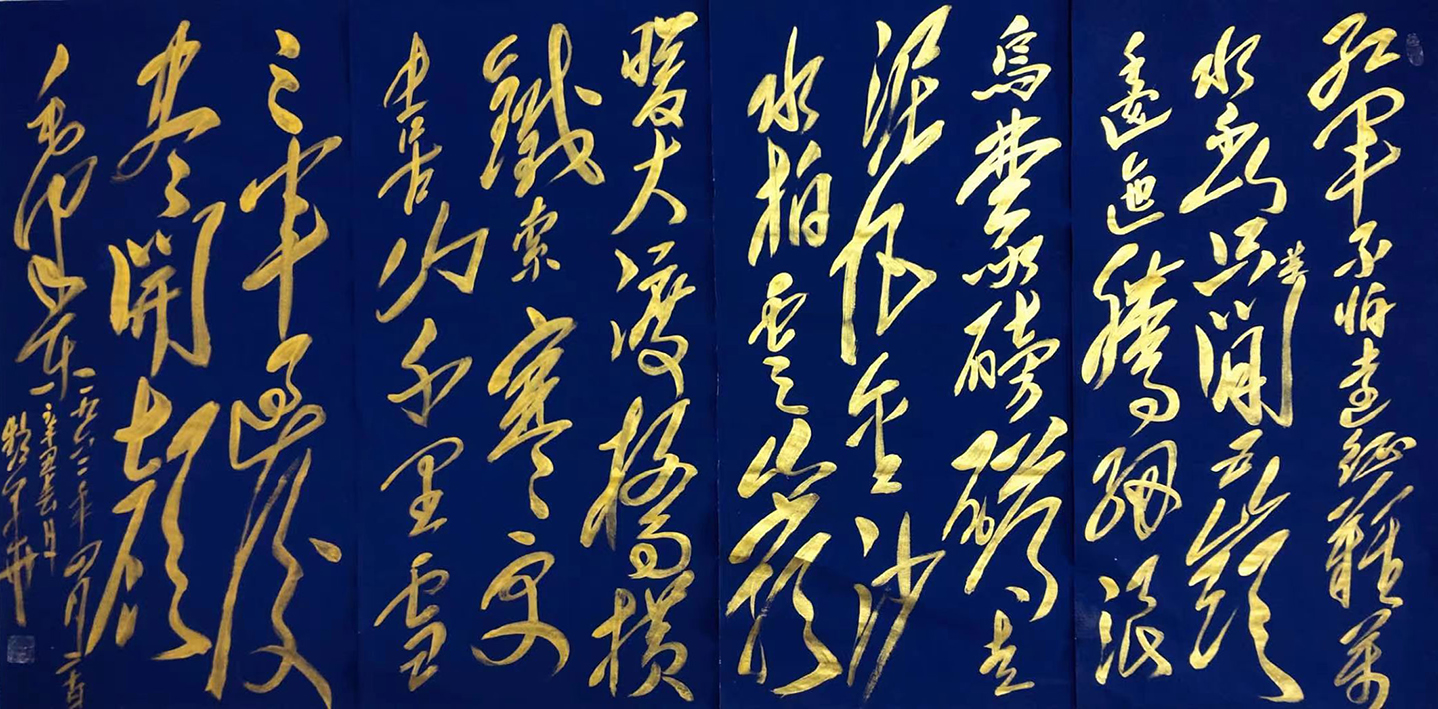 紅軍不怕遠征難萬
水千山只等閒五嶺
逶迤騰細浪
烏蒙磅礴走
泥丸金沙
水拍雲崖
暖大渡橋橫
鐵索寒更
喜岷山千里雪
三軍過後
盡開顏
毛澤東
一九六二年四月二十日
辛丑冬月